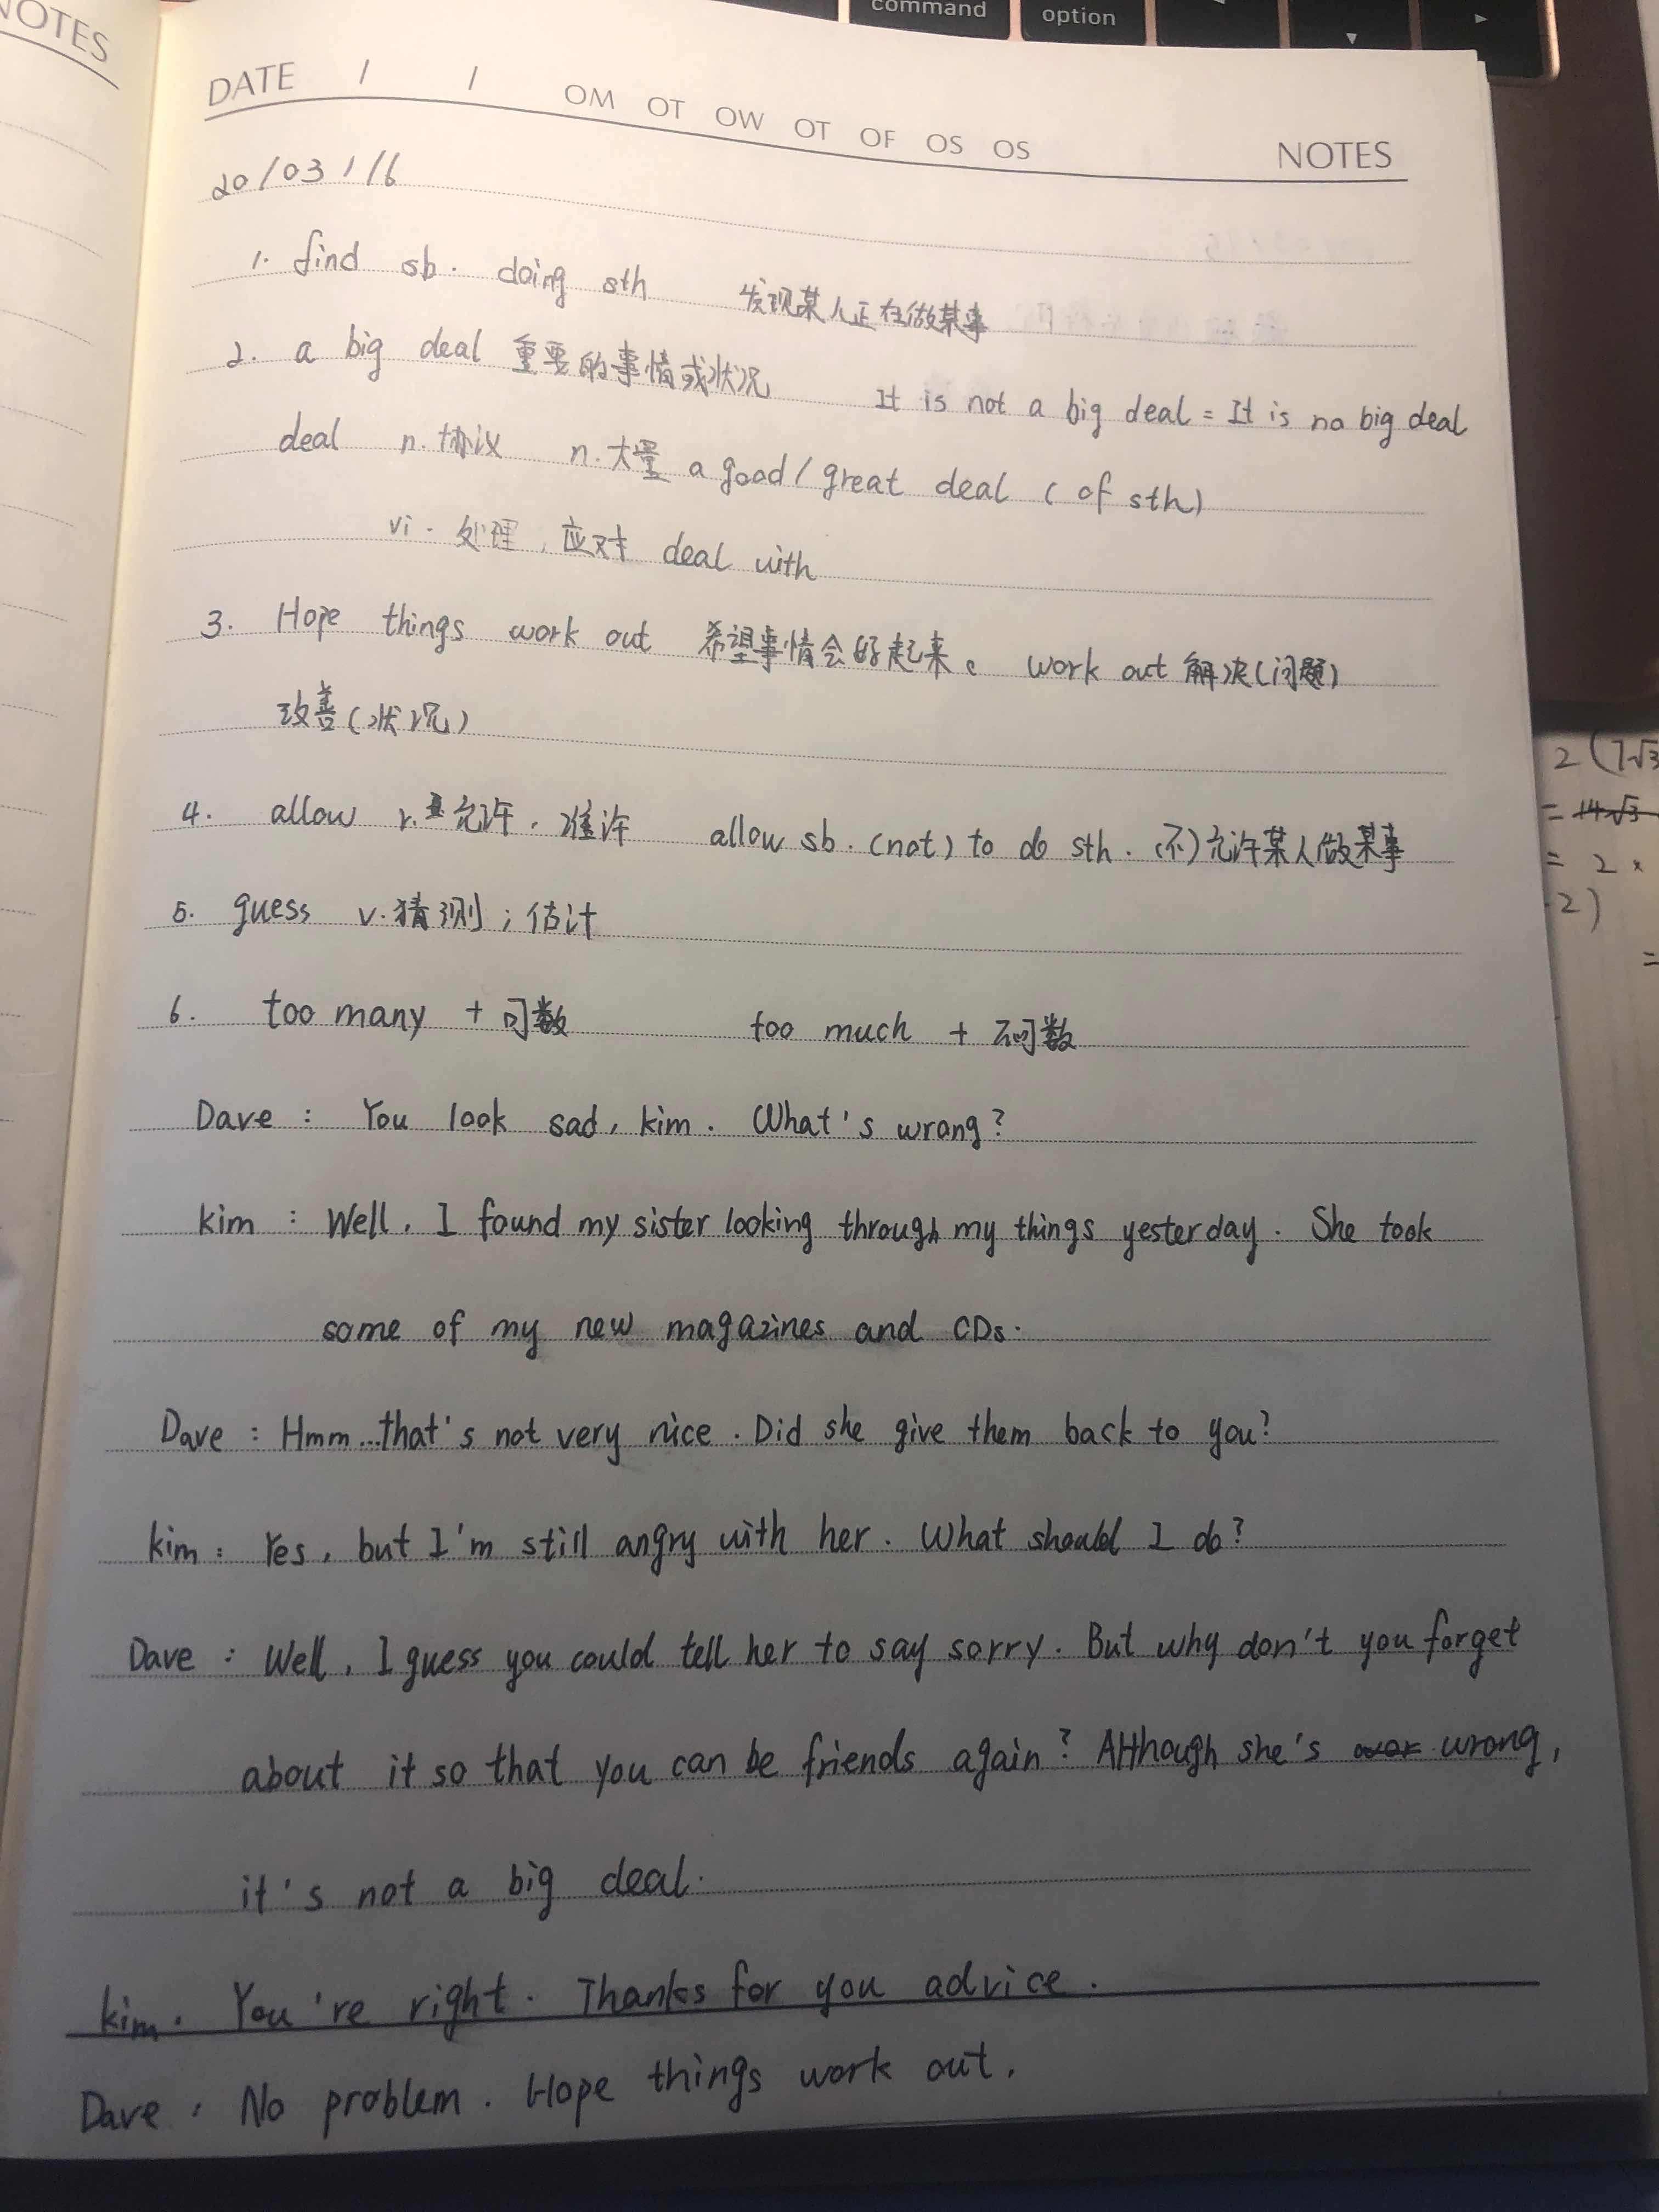 NOTES
command option
DATE / / OM OT OW OT OF OS OS NOTES
20/03/16
1. find sb. doing sth 发现某人正在做某事
2. a big deal 重要的事情或状况 It is not a big deal = It is no big deal
deal n.协议 n.大量 a good/great deal (of sth)
vi. 处理,应对 deal with
3. Hope things work out 希望事情会好起来。 work out 解决(问题)
改善(状况)
4. allow v.允许,准许 allow sb. (not) to do sth. (不)允许某人做某事
5. guess v.猜测;估计
6. too many + 可数 too much + 不可数
Dave : You look sad, kim. What's wrong?
kim : Well, I found my sister looking through my things yesterday. She took
some of my new magazines and CDs.
Dave : Hmm...that's not very nice. Did she give them back to you?
kim : Yes, but I'm still angry with her. What should I do?
Dave : Well, I guess you could tell her to say sorry. But why don't you forget
about it so that you can be friends again? Although she's wrong,
it's not a big deal.
kim. You're right. Thanks for you advice.
Dave : No problem. Hope things work out.
2(7√3
= 14√3
= 2 ×
2)
=